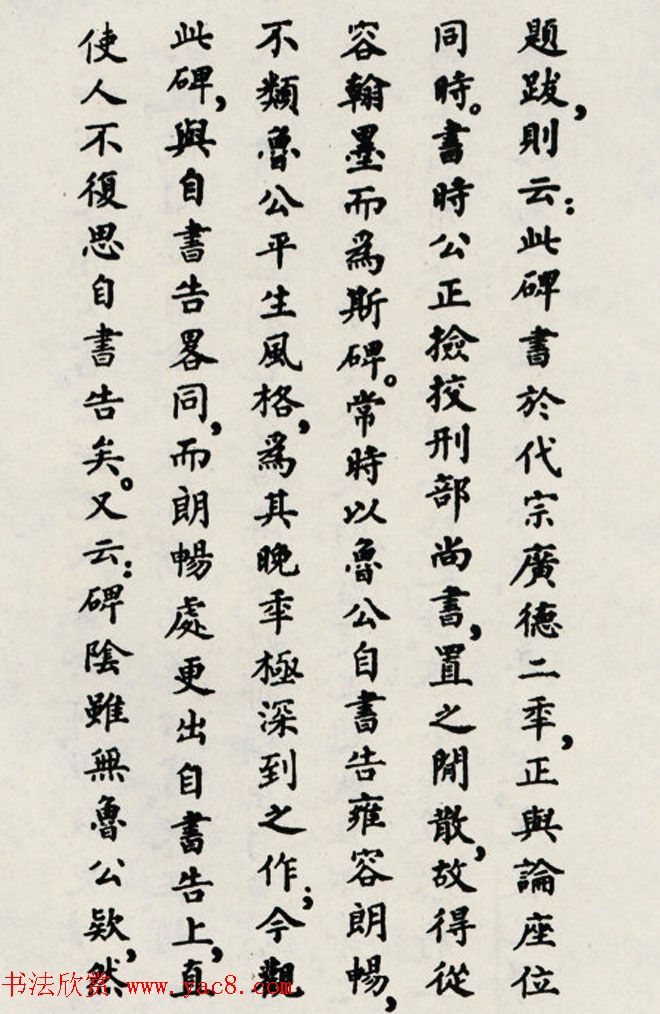 題跋，則云：此碑書於代宗廣德二秊，正與論座位
同時。書時公正撿挍刑部尚書，置之閒散，故得從
容翰墨而爲斯碑。常時以魯公自書告雍容朗暢，
不類魯公平生風格，爲其晚秊極深到之作；今觀
此碑，與自書告畧同，而朗暢處更出自書告上，直
使人不復思自書告矣。又云：碑陰雖無魯公欵，然
书法欣赏 www.yac8.com